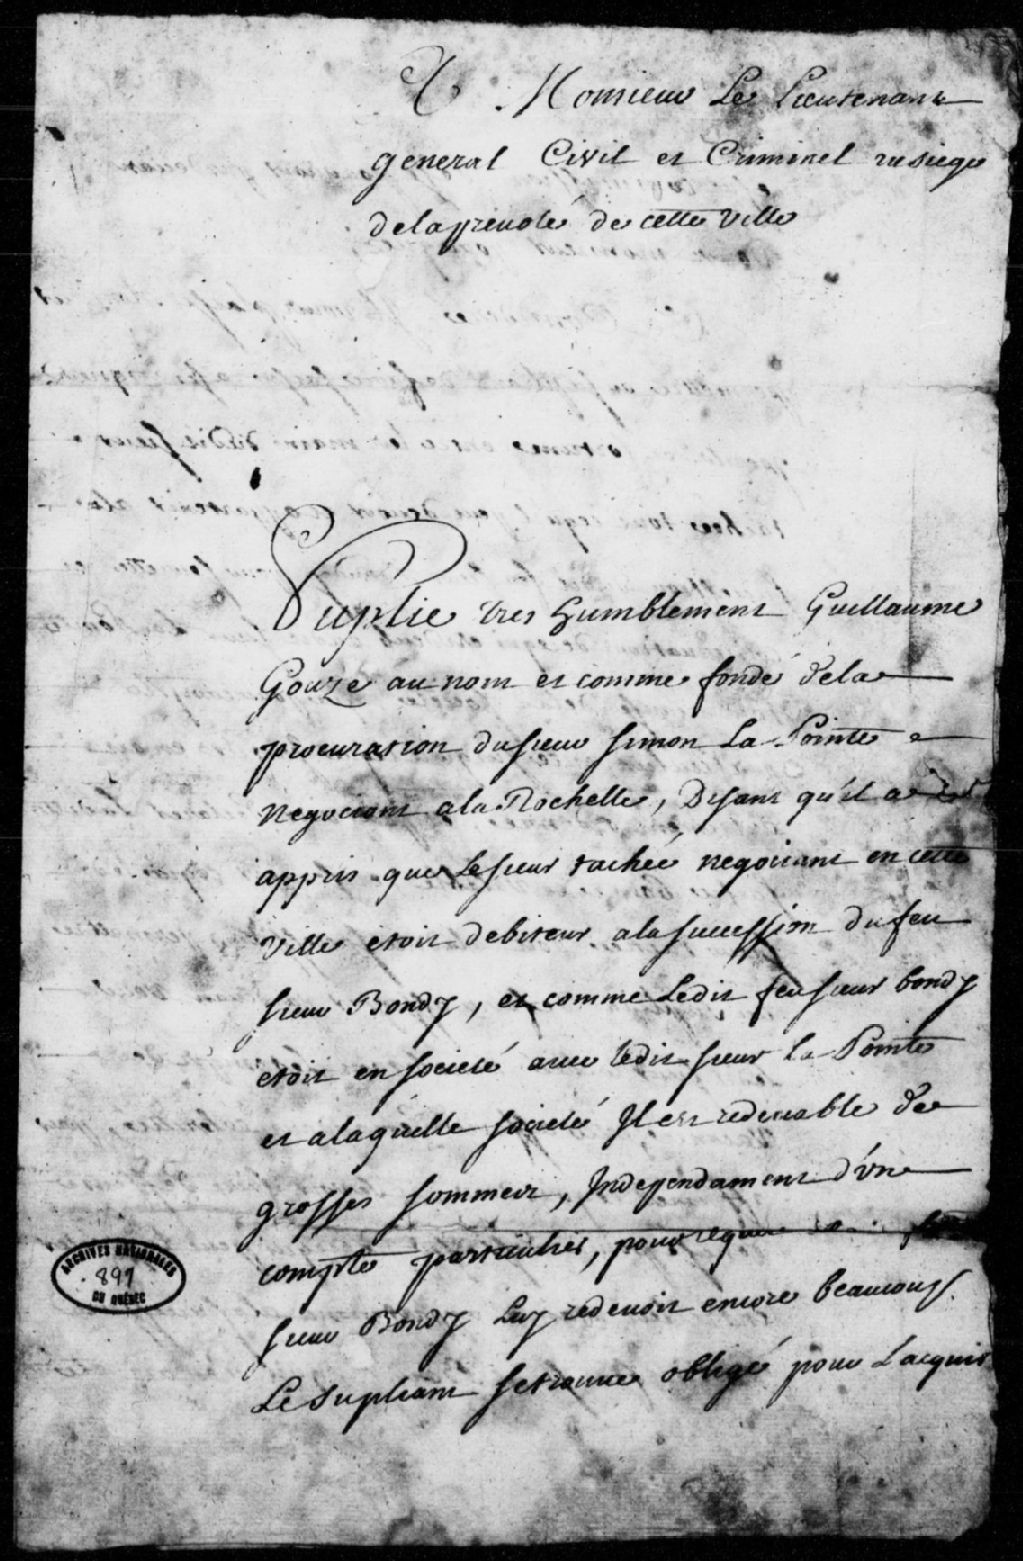 A Monsieur Le Lieutenant
general Civil et Criminel au siege
de la prevoté de cette Ville
Suplie tres humblement Guillaume
Gouze au nom et comme fondé de la
procuration du sieur Simon La Pointe
negociant a la Rochelle, Disant qu'il a
appris que le sieur tachée negociant en cette
Ville etoit debiteur a la succession du feu
sieur Bondy, et comme Ledit feu sieur bondy
etoit en societé avec ledit sieur La Pointe
et a laquelle societé Il est redevable de
grosses sommes, Independament d'un
compte particulier, pour lequel
sieur Bondy Luy redevoit encore beaucoup.
Le supliant se trouve obligé pour L'acquis
ARCHIVES NATIONALES
897
DU QUÉBEC